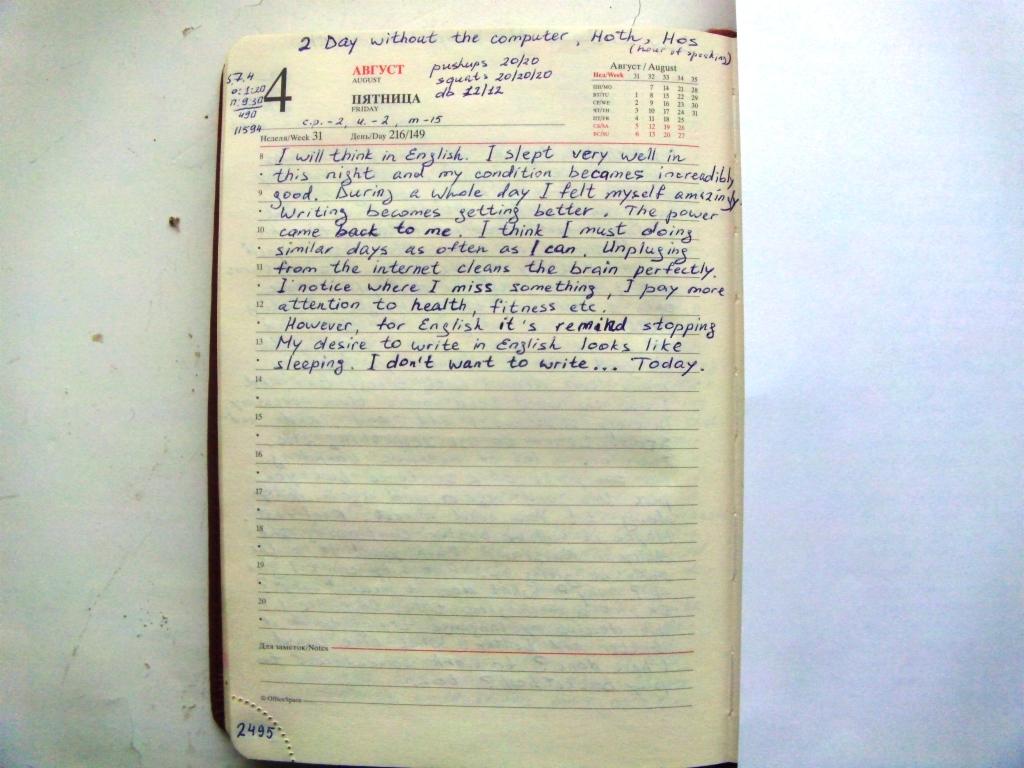 2 Day without the computer, Hoth, Hos
(hour of speaking)
57,4
0:1:20
П:9:30
490
11594
4
АВГУСТ
AUGUST
ПЯТНИЦА
FRIDAY
pushups 20/20
squats 20/20/20
db 12/12
с.р.-2, и.-2, т-15
Август / August
Нед/Week 31 32 33 34 35
ПН/MO 7 14 21 28
ВТ/TU 1 8 15 22 29
СР/WE 2 9 16 23 30
ЧТ/TH 3 10 17 24 31
ПТ/FR 4 11 18 25
СБ/SA 5 12 19 26
ВС/SU 6 13 20 27
Неделя/Week 31 День/Day 216/149
8 I will think in English. I slept very well in
this night and my condition becames increadibly
9 good. During a whole day I felt myself amazingy.
Writing becomes getting better. The power
10 came back to me. I think I must doing
similar days as often as I can. Unpluging
11 from the internet cleans the brain perfectly.
I notice where I miss something, I pay more
12 attention to health, fitness etc.
However, for English it's remind stopping
13 My desire to write in English looks like
sleeping. I don't want to write... Today.
14
15
16
17
18
19
20
Для заметок/Notes
© OfficeSpace
2495